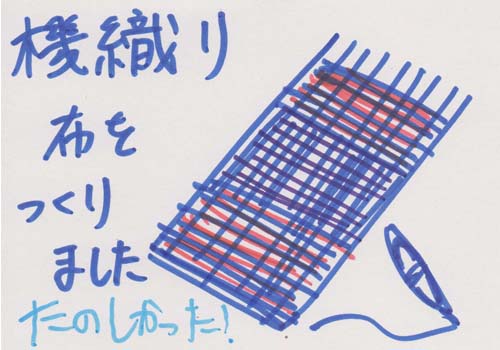 機織り
布を
つくり
ました
たのしかった!